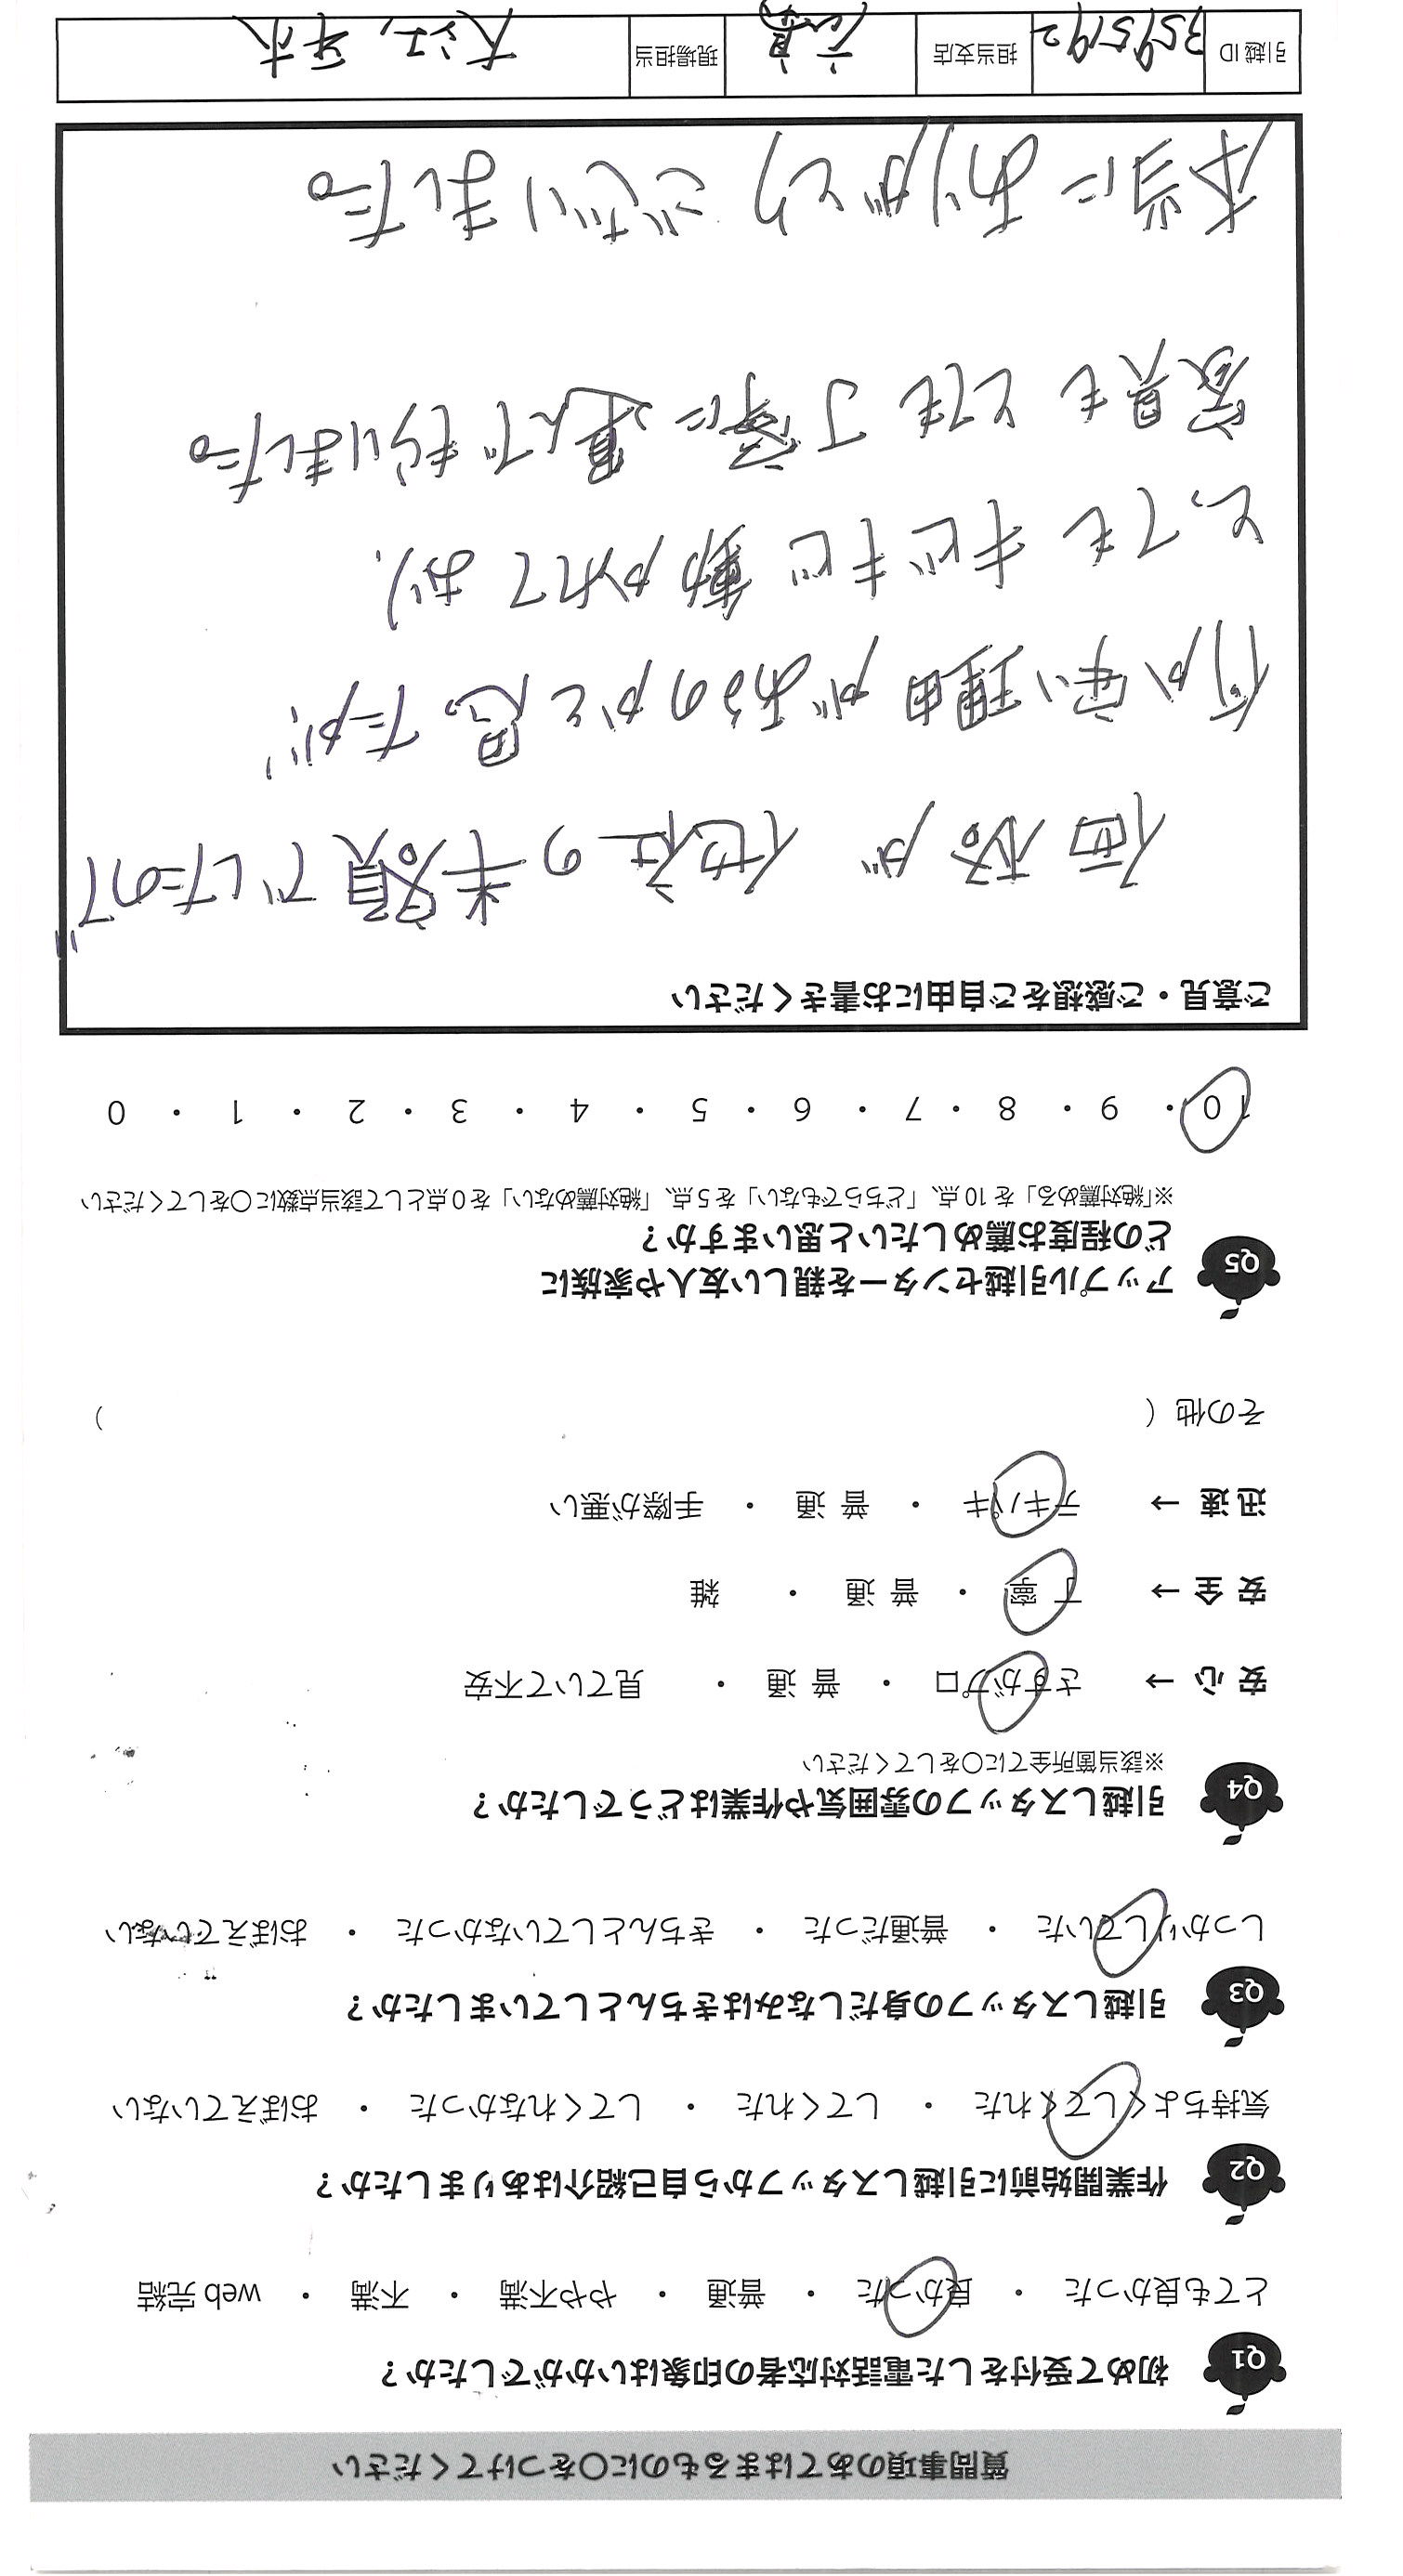 質問事項のあてはまるものに〇をつけてください
Q1 初めて受付をした電話対応者の印象はいかがでしたか？
とても良かった ・ 良かった ・ 普通 ・ やや不満 ・ 不満 ・ web 完結
Q2 作業開始前に引越しスタッフから自己紹介はありましたか？
気持ちよくしてくれた ・ してくれた ・ してくれなかった ・ おぼえていない
Q3 引越しスタッフの身だしなみはきちんとしていましたか？
しっかりしていた ・ 普通だった ・ きちんとしていなかった ・ おぼえていない
Q4 引越しスタッフの雰囲気や作業はどうでしたか？
※該当箇所全てに〇をしてください
安 心 → さすがプロ ・ 普 通 ・ 見ていて不安
安 全 → 丁 寧 ・ 普 通 ・ 雑
迅 速 → テキパキ ・ 普 通 ・ 手際が悪い
その他（ ）
Q5 アップル引越センターを親しい友人や家族に
どの程度お薦めしたいと思いますか？
※「絶対薦める」を 10 点、「どちらでもない」を 5 点、「絶対薦めない」を 0 点として該当点数に〇をしてください
10 ・ 9 ・ 8 ・ 7 ・ 6 ・ 5 ・ 4 ・ 3 ・ 2 ・ 1 ・ 0
ご意見・ご感想をご自由にお書きください
価格が他社の半額でしたので
何か安い理由があるのかと思ったが、
とってもキビキビ動かれており、
家具もとても丁寧に運んでもらいました。
本当にありがとうございました。
引越 ID 3595192 担当支店 現場担当 大江,